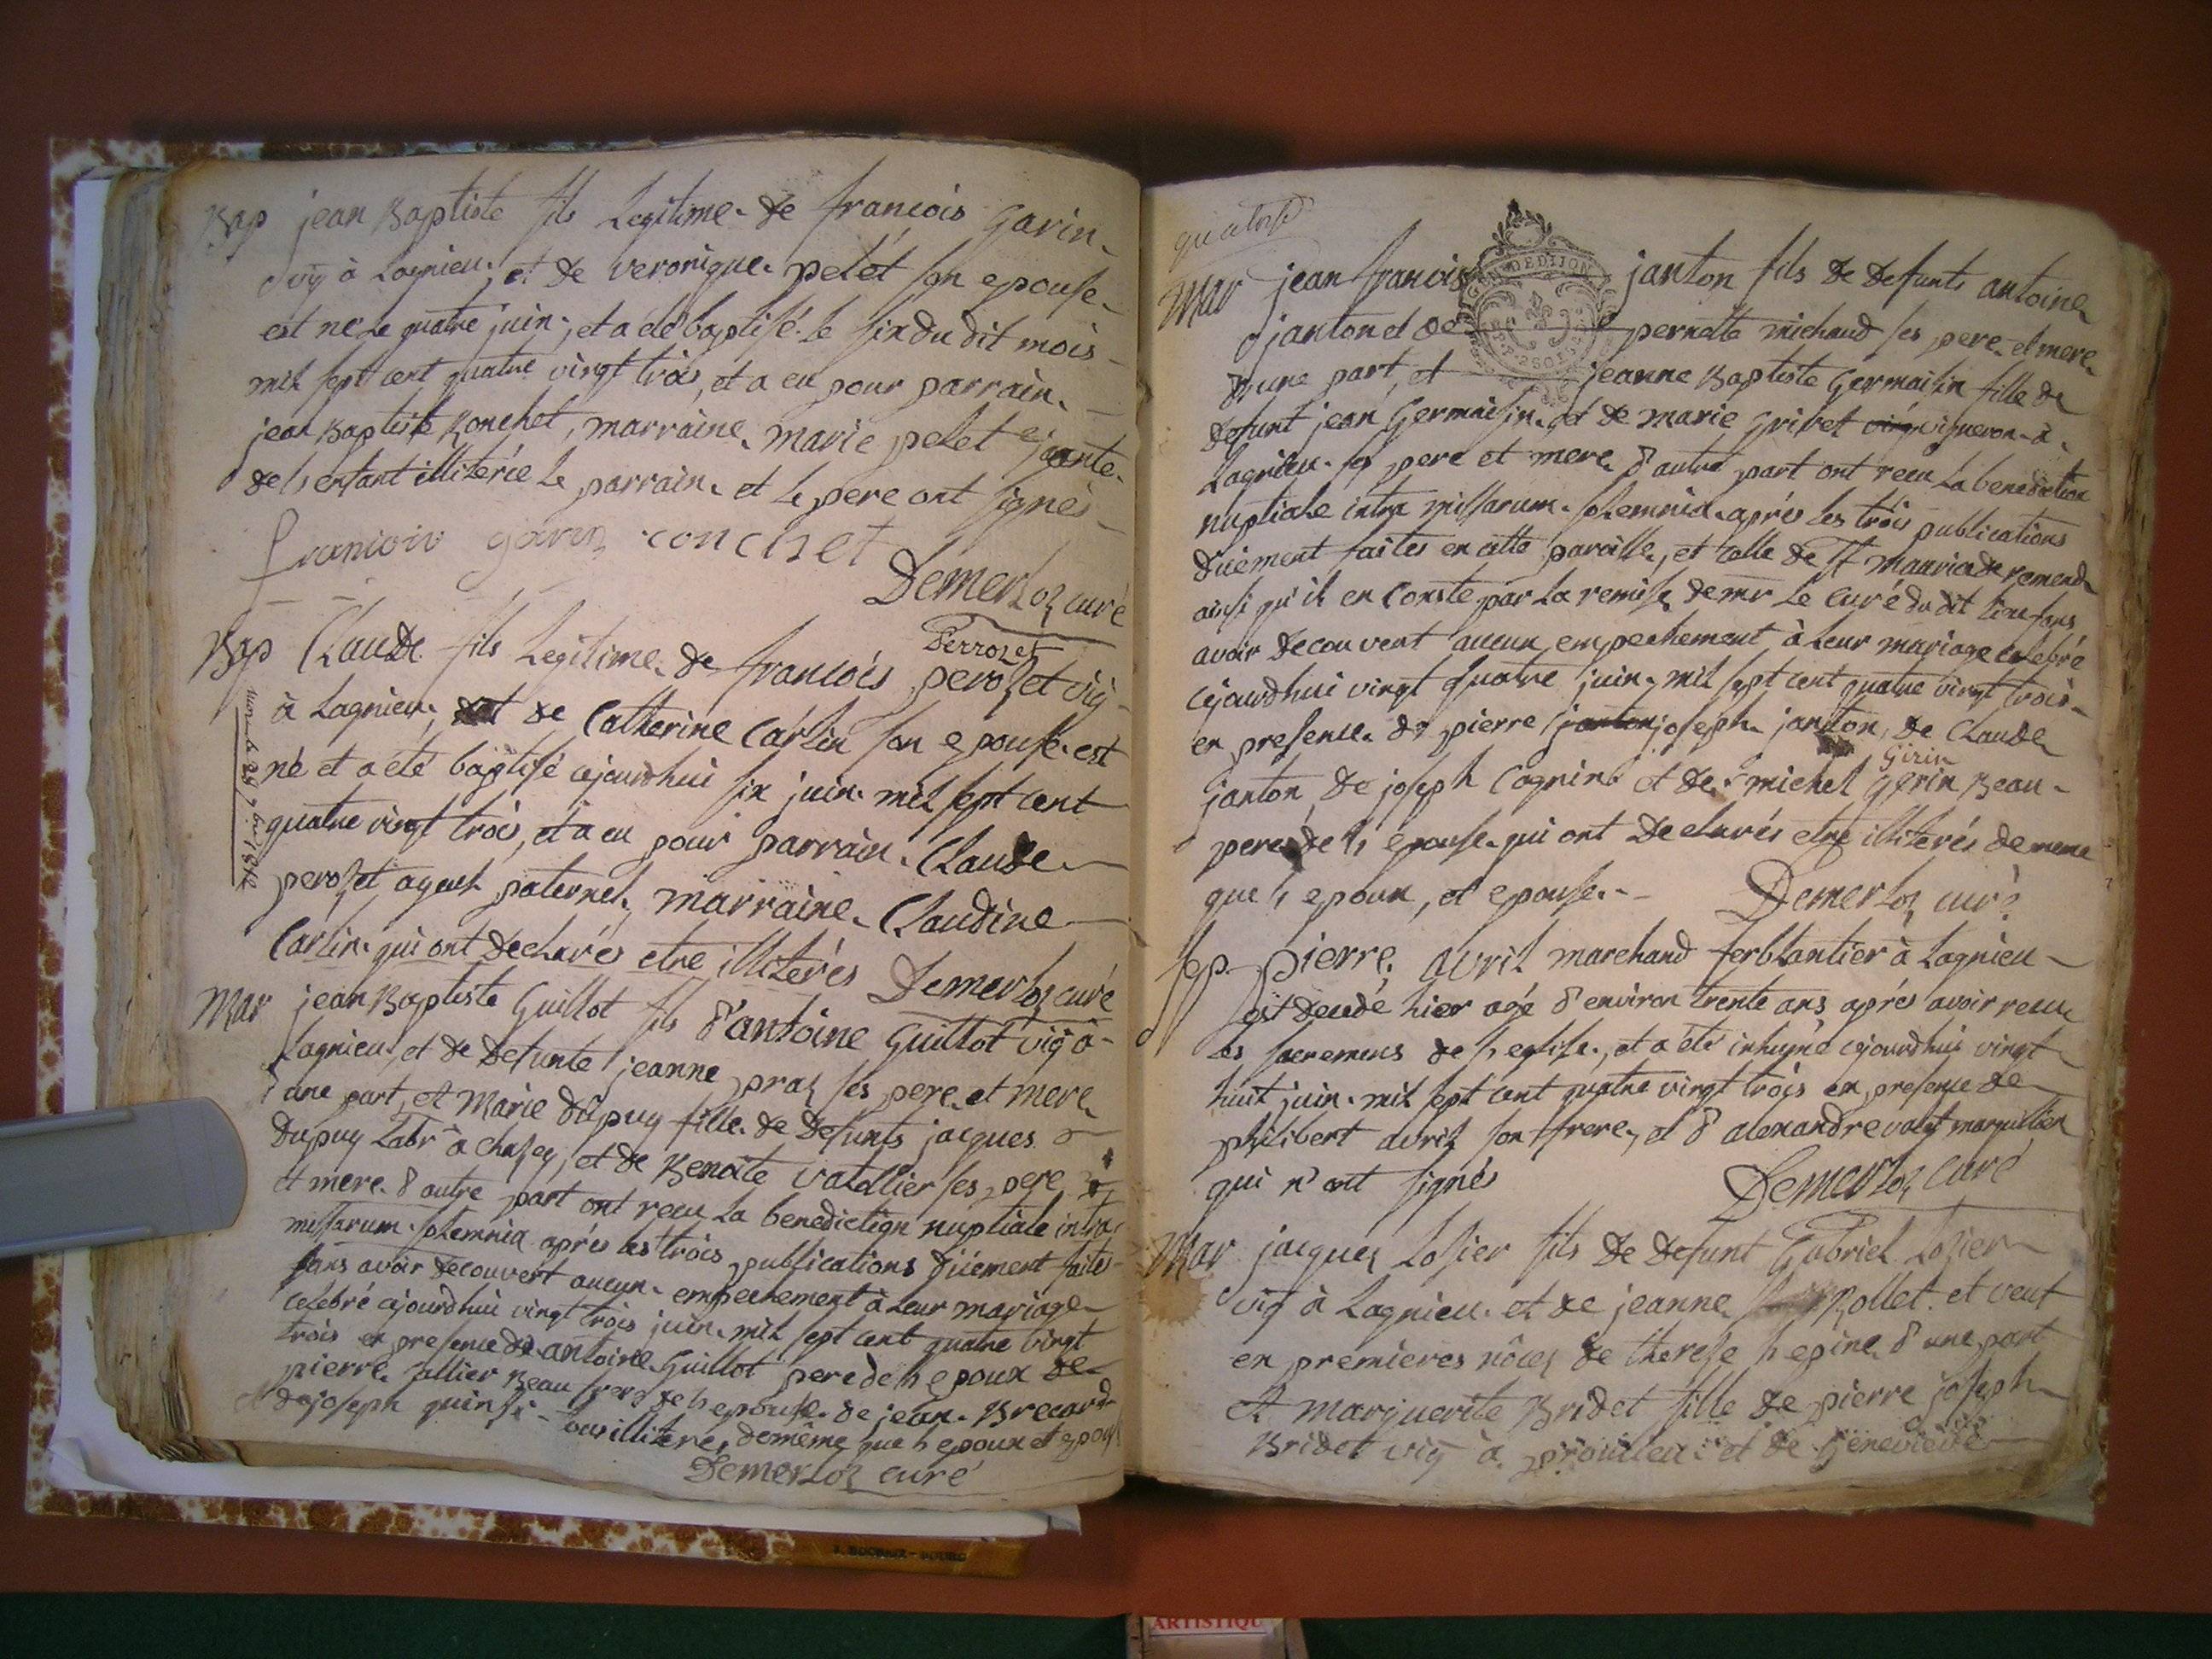 Bap jean Baptiste fils Legitime de francois Garin
vig à Lagnieu, et de veronique pelét son epouse
est ne le quatre juin, et a été baptisé le six du dit mois
mil sept cent quatre vingt trois, et a eu pour parrain
jean Baptiste Ronchet, marraine marie pelet tante
de l'enfant illiterée le parrain et le pere ont signés
francois garin ronchet
Demerloz curé
Perrozet
Bap Claude fils Legitime de francois perozet vig
à Lagnieu, et de Catherine Carlin son epouse est
né et a eté baptisé cejourdhui six juin mil sept cent
quatre vingt trois, et a eu pour parrain Claude
perozet ayeul paternel, marraine Claudine
Carlin qui ont declarés etre illiterés Demerloz curé
Mar jean Baptiste Guillot fils d'antoine Guillot vig à
Lagnieu, et de defunte jeanne praz ses pere et mere
d'une part, et Marie dupuy fille de defunts jacques
dupuy labr à chazey, et de Benoite vatellier ses pere
et mere d'autre part ont recu la benediction nuptiale intra
missarum solemnia aprés les trois publications düement faites
sans avoir decouvert aucun empechement à leur mariage
celebré cejourdhui vingt trois juin mil sept cent quatre vingt
trois en presence de antoine Guillot pere de l'epoux de
pierre Jallier Beau frere de l'epouse de jean Brecard
de joseph quinsi tous illiterés de même que l'epoux et epouse
Demerloz curé
quatorse
GEN DE DIJON
Mar jean francois janton fils de defunts antoine
janton et de pernette michaud ses pere et mere
d'une part, et jeanne Baptiste Germain fille de
defunt jean Germain et de marie Grivet vigneron à
Lagnieu ses pere et mere d'autre part ont recu la benediction
nuptiale intra missarum solemnia aprés les trois publications
düement faites en cette paroisse, et celle de St maurice de remend
ainsi qu'il en conste par la remise de mr le curé du dit lieu sans
avoir decouvert aucun empechement à leur mariage celebré
cejourdhui vingt quatre juin mil sept cent quatre vingt trois
en presence de pierre janton joseph janton, de Claude
Girin
janton de joseph Cagnin et de michel Gerin Beau
pere de l'epouse qui ont declarés etre illiterés de meme
que l'epoux, et epouse Demerloz curé
Sep pierre avril marchand ferblantier à Lagnieu
est decedé hier agé d'environ trente ans aprés avoir recu
les sacremens de l'eglise, et a été inhumé cejourdhui vingt
huit juin mil sept cent quatre vingt trois en presence de
philibert avril son frere, et d'alexandre valet marguillier
qui n'ont signés Demerloz curé
Mar jacques Losier fils de defunt Gabriel Losier
vig à Lagnieu et de jeanne Rollet et veuf
en premieres nôces de therese l'epine d'une part
et marguerite Bridet fille de pierre joseph
Bridet vig à proulieu et de Genevieve
ARTISTIQU